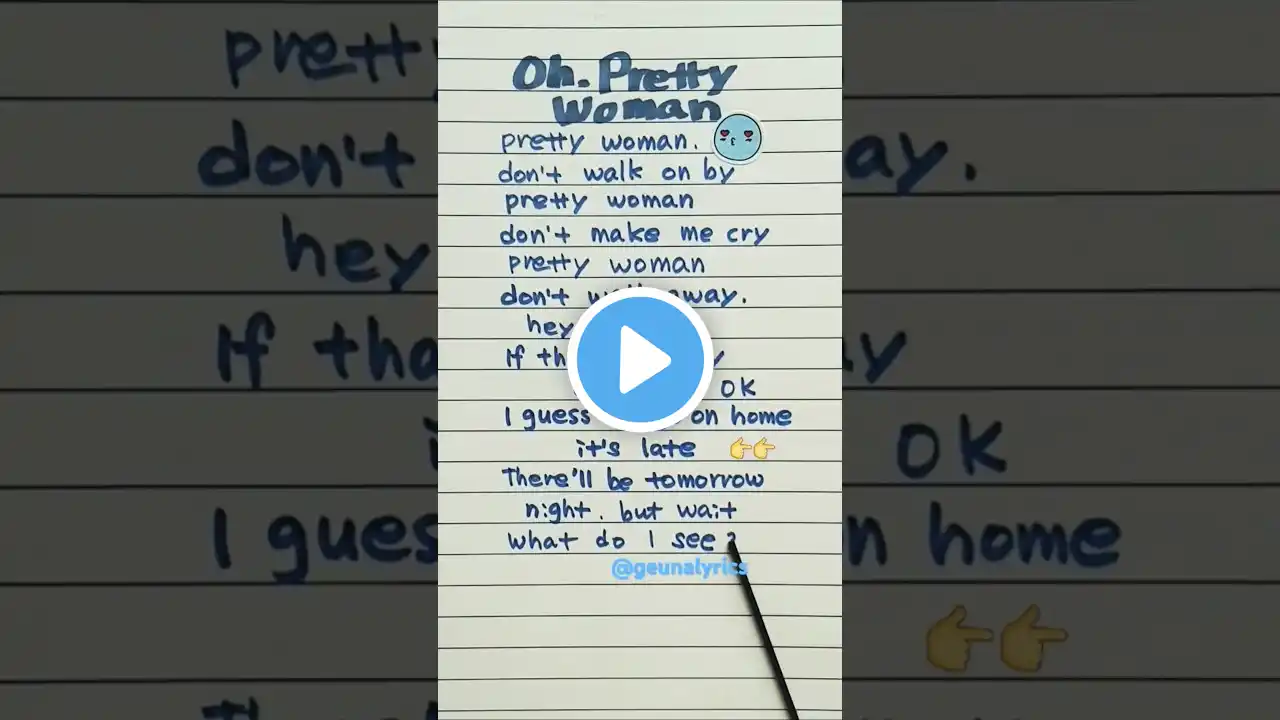 Oh. Pretty
Woman
pretty woman.
don't walk on by
pretty woman
don't make me cry
pretty woman
don't away.
hey
If
OK
I guess on home
it's late
There'll be tomorrow
night. but wait
what do I see ?
@geunalyrics